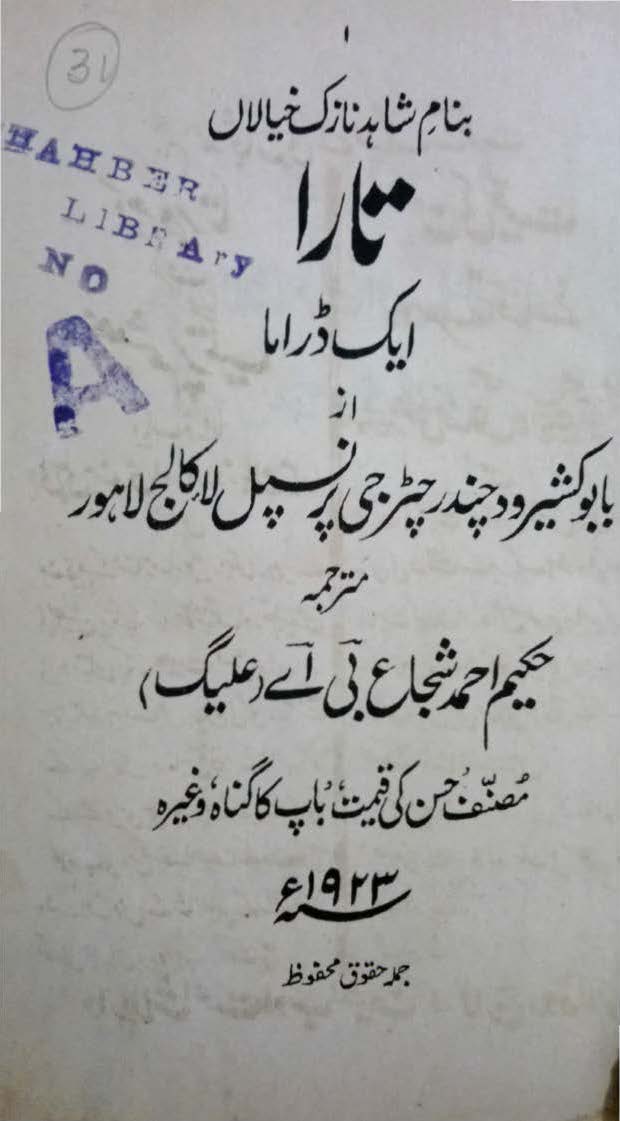 ۱
31
بنامِ شاہد نازک خیالاں
HAHBER
LIBRAry
NO
A
تارا
ایک ڈراما
از
بابو کشیرود چندر چٹرجی پرنسپل لا کالج لاہور
مترجمہ
حکیم احمد شجاع بی اے (علیگ)
مصنّف حُسن کی قیمت، باپ کا گناہ، وغیرہ
۱۹۲۳ء
جملہ حقوق محفوظ